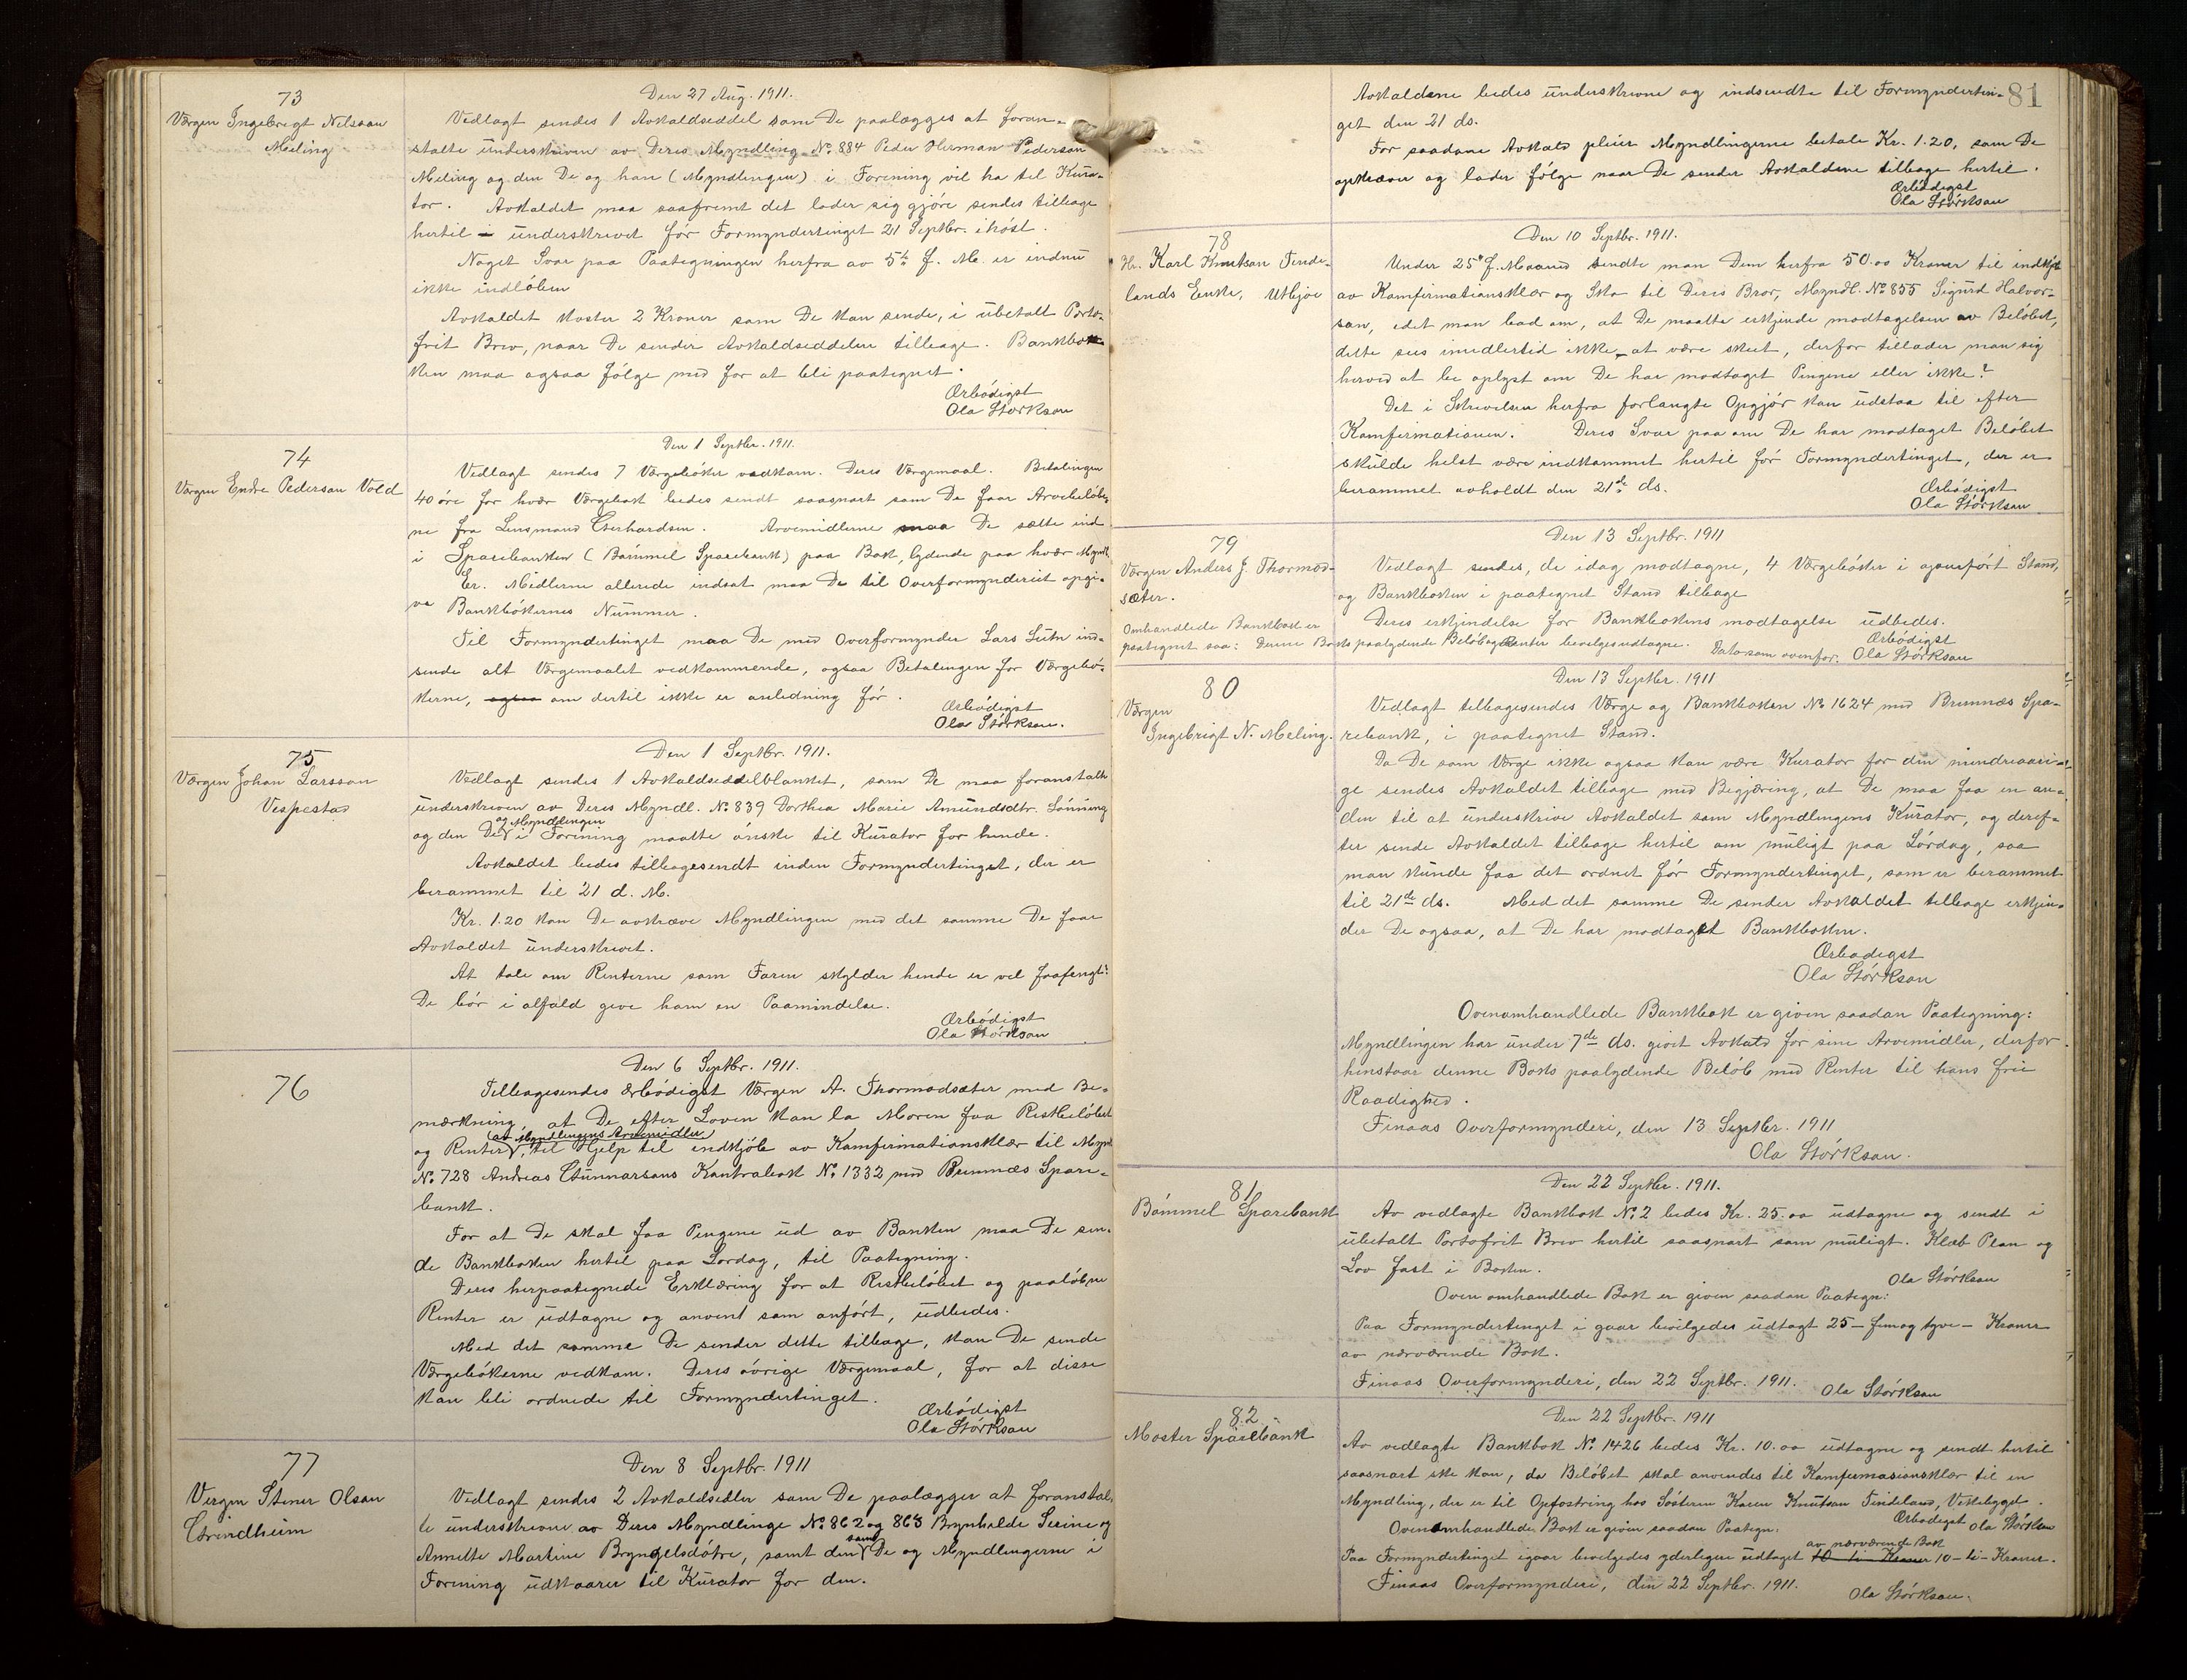 73
Værgen Ingebrigt Nelssan
Meling
Den 27 Aug. 1911.
Vedlagt sendes 1 Avkaldseddel som De paalægges at foran-
stalte underskreven av Deres Myndling No. 884 Peder Herman Pederson
Meling og den De og han (Myndlingen) i Forening vil ha til Kura-
tor. Avkaldet maa saafremt det lader sig gjøre sendes tilbage
hertil – underskrevet før Formyndertinget 21 Septbr. ihøst.
Noget Svar paa Paategningen herfra av 5te f. M. er indnu
ikke indløben
Avkaldet koster 2 Kroner som De kan sende, i ubetalt Porto-
frit Brev, naar De sender Avkaldseddelen tilbage. Bankbok
ken maa ogsaa følge med for at bli paategnet.
Ærbødigst
Ola Størksan
74
Værgen Endre Pederson Vold
Den 1 Septbr. 1911.
Vedlagt sendes 7 Værgebøker vedkom. Deres Værgemaal. Betalingen
40 øre for hver Værgebok bedes sendt saasnart som De faar Arvebeløbe-
ne fra Lensmand Gerhardsen. Arvemidlerne maa De sætte ind
i Sparebanken (Bømmel Sparebank) paa Bok, lydende paa hver Myndl.
Er Midlerne allerede indsat maa De til Overformynderiet opgi-
ve Bankbøkernes Nummer.
Til Formyndertinget maa De med Overformynder Lars Lutn ind-
sende alt Værgemaalet vedkommende, ogsaa Betalingen for Værgebø-
kerne, ogsaa om dertil ikke er anledning før.
Ærbødigst
Ola Størksan.
75
Værgen Johan Larsson
Vespestad
Den 1 Septbr. 1911.
Vedlagt sendes 1 Avkaldseddelblanket, som De maa foranstalte
underskreven av Deres Myndl. No. 839 Dorthea Marie Amundsdtr. Lønning
og Myndlingen
og den De i Forening maatte ønske til Kurator for hende.
Avkaldet bedes tilbagesendt inden Formyndertinget, der er
berammet til 21 d. M.
Kr. 1.20 kan De avkræve Myndlingen med det samme De faar
Avkaldet underskrevet.
At tale om Renterne som Faren skylder hende er vel faafengt?
De bør i alfald give ham en Paamindelse.
Ærbødigst
Ola Størksan
76
Den 6 Septbr. 1911.
Tilbagesendes ærbødigst Værgen A. Thormodsæter med Be-
mærkning at De efter Loven kan la Moren faa Restbeløbet
(av Myndlingens Arvemidler)
og Renter, til Hjelp til indkjøb av Konfirmationsklær til Myndl
No. 728 Andreas Gunnarsons Kontrabok No. 1332 med Bremnæs Spare-
bank.
For at De skal faa Pengene ud av Banken maa De sen-
de Bankboken hertil paa Lørdag, til Paategning.
Deres herpaategnede Erklæring for at Restbeløbet og paaløbne
Renter er udtagne og anvent som anført, udbedes.
Med det samme De sender dette tilbage, kan De sende
Værgebøkerne vedkom. Deres øvrige Værgemaal, for at disse
kan bli ordnede til Formyndertinget.
Ærbødigst
Ola Størksan
77
Vergen Stener Olsan
Grindheim
Den 8 Septbr. 1911
Vedlagt sendes 2 Avkaldsedler som De paalægger at foranstal-
te underskrevne av Deres Myndlinge No. 862 og 863 Brynhilde Serine og
som
Annette Martine Bryngelsdøtre, samt den De og Myndlingerne i
Forening udkaarer til Kurator for dem.
81
Avkaldene bedes underskrevne og indsendte til Formynderten-
get den 21 ds.
For saadane Avkald pleier Myndlingerne betale Kr. 1.20, som De
opkræver og lader følge naar De sender Avkaldene tilbage hertil.
Ærbødigst
Ola Størksan
78
Hr. Karl Knutsan Finde-
lands Enke, Utbjoe
Den 10 Septbr. 1911.
Under 25de f. Maaned sendte man Dem herfra 50.00 Kroner til indkjøb
av Komfirmationsklær og Sko til Deres Bror, Myndl. No. 855 Sigurd Halvor-
san, idet man bad om, at De maatte erkjende modtagelsen av Beløbet,
dette sees imidlertid ikke at være skeet, derfor tillader man sig
herved at be oplyst om De har modtaget Pengene eller ikke?
Det i Skrivelsen herfra forlangte Opgjør kan udstaa til efter
Komfirmationen. Deres Svar paa om De har modtaget Beløbet
skulde helst være indkommet hertil før Formyndertinget, der er
berammet avholdt den 21de ds.
Ærbødigst
Ola Størksan
79
Værgen Anders J. Thormod-
sæter.
Den 13 Septbr. 1911
Vedlagt sendes, de idag modtagne, 4 Værgebøker i ajourført Stand,
og Bankboken i paategnet Stand tilbage
Deres erkjendelse for Bankbokens modtagelse udbedes.
Omhandlede Bankbok er
paategnet saa: Denne Boks paalydende Beløb og Renter bevilges udtagne. Dato som ovenfor.
Ærbødigst
Ola Størksan
80
Værgen
Ingebrigt N. Meling.
Den 13 Septbr. 1911
Vedlagt tilbagesendes Værge og Bankboken No. 1624 med Bremnæs Spa-
rebank, i paategnet Stand.
Da De som Værge ikke ogsaa kan være Kurator for den mindreaari-
ge sendes Avkaldet tilbage med Begjæring, at De maa faa en an-
den til at underskrive Avkaldet som Myndlingens Kurator, og deref-
ter sende Avkaldet tilbage hertil om muligt paa Lørdag, saa
man kunde faa det ordnet før Formyndertinget, som er berammet
til 21de ds. Med det samme De sender Avkaldet tilbage erkjen-
der De ogsaa, at De har modtaget Bankboken.
Ærbødigst
Ola Størksan
Ovenomhandlede Bankbok er given saadan Paategning:
Myndlingen har under 7de ds. givet Avkald for sine Arvemidler, derfor
henstaar denne Boks paalydende Beløb med Renter til hans frie
Raadighed.
Finaas Overformynderi, den 13 Septbr. 1911
Ola Størksan.
81
Bømmel Sparebank
Den 22 Septbr. 1911.
Av vedlagte Bankbok No. 2 bedes Kr. 25.00 udtagne og sendt i
ubetalt Portofrit Brev hertil saasnart som muligt. Kleb Plan og
Lov fast i Boken.
Ola Størksan
Oven omhandlede Bok er given saadan Paategn:
Paa Formyndertinget i gaar bevilgedes udtagt 25 – fem og tyve – Kroner
av nærværende Bok.
Finaas Overformynderi, den 22 Septbr. 1911.
Ola Størksan
82
Moster Sparebank
Den 22 Septbr. 1911
Av vedlagte Bankbok No. 1426 bedes Kr. 10.00 udtagne og sendt hertil
saasnart ske kan, da Beløbet skal anvendes til Komfirmasionsklær til en
Myndling, der er til Opfostring hos Søsteren Karen Knutsan Findeland, Vestebygd.
Ærbødigst Ola Størksan
Ovenomhandlede Bok er given saadan Paategn:
av nærværende Bok
Paa Formyndertinget igaar bevilgedes yderligere udtaget 10 – ti – Kroner 10 – ti – Kroner.
Finaas Overformynderi, den 22 Septbr. 1911.
Ola Størksan.